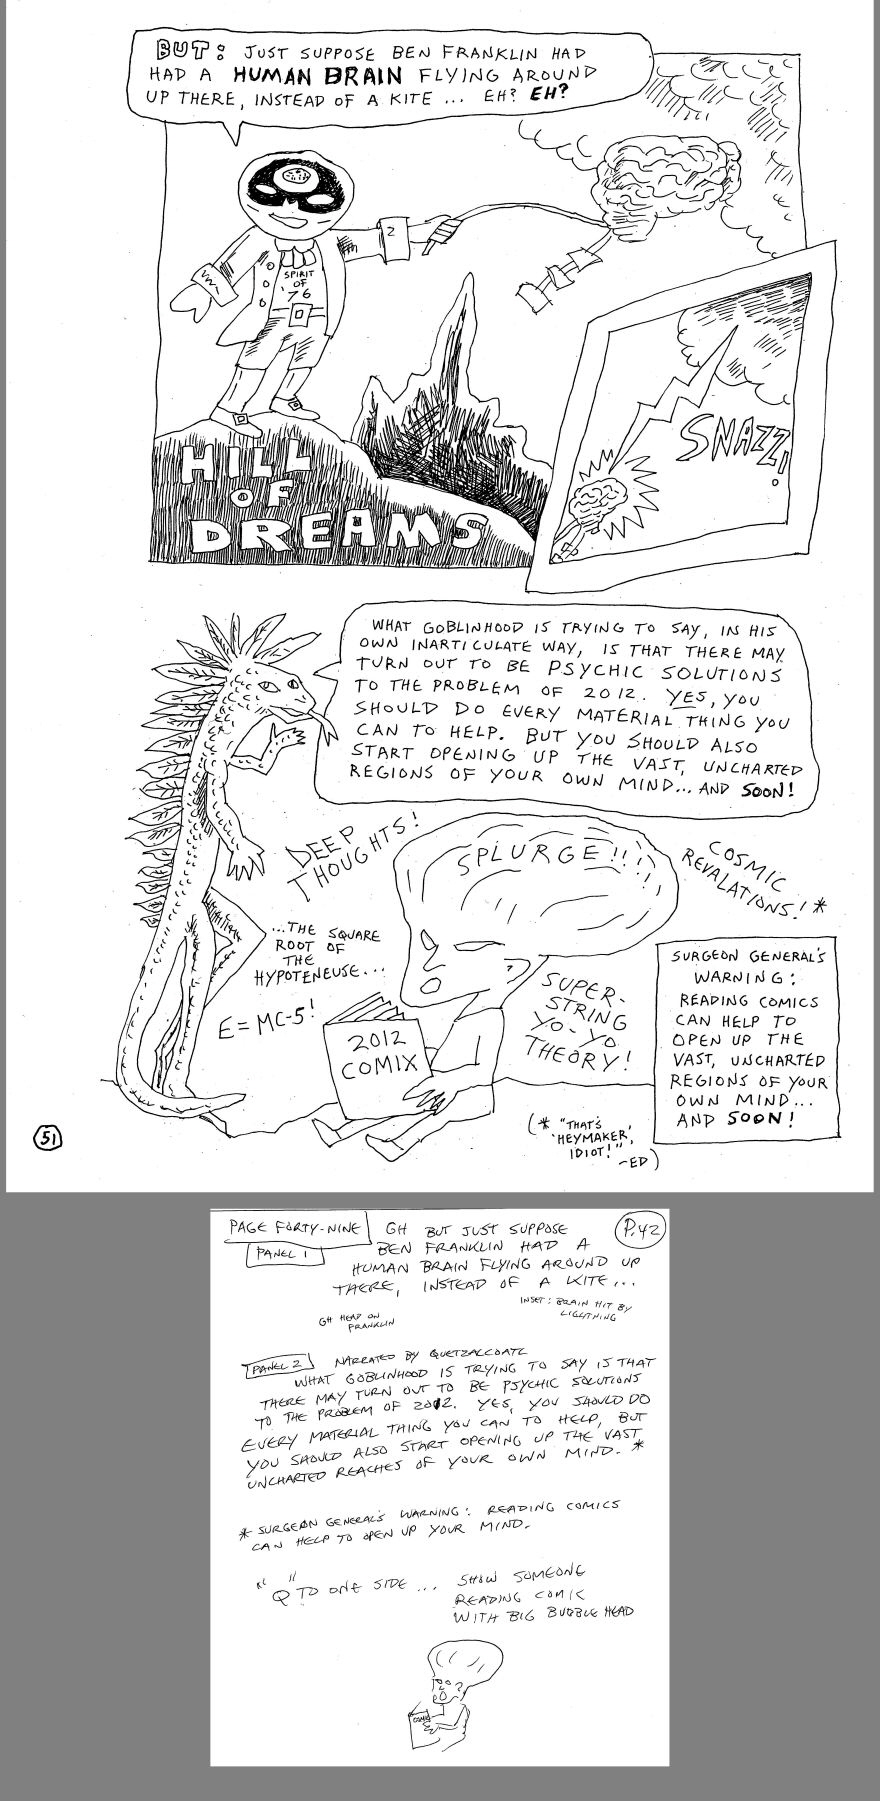 BUT: JUST SUPPOSE BEN FRANKLIN HAD
HAD A HUMAN BRAIN FLYING AROUND
UP THERE, INSTEAD OF A KITE ... EH? EH?
2
SPIRIT
OF
'76
SNAZZ!
HILL
OF
DREAMS
WHAT GOBLINHOOD IS TRYING TO SAY, IN HIS
OWN INARTICULATE WAY, IS THAT THERE MAY
TURN OUT TO BE PSYCHIC SOLUTIONS
TO THE PROBLEM OF 2012. YES, YOU
SHOULD DO EVERY MATERIAL THING YOU
CAN TO HELP. BUT YOU SHOULD ALSO
START OPENING UP THE VAST, UNCHARTED
REGIONS OF YOUR OWN MIND... AND SOON!
DEEP
THOUGHTS!
SPLURGE!!!
COSMIC
REVALATIONS!*
...THE SQUARE
ROOT OF
THE
HYPOTENEUSE...
E=MC-5!
2012
COMIX
SUPER-
STRING
YO-YO
THEORY!
SURGEON GENERAL'S
WARNING:
READING COMICS
CAN HELP TO
OPEN UP THE
VAST, UNCHARTED
REGIONS OF YOUR
OWN MIND...
AND SOON!
(* "THAT'S
'HEYMAKER',
IDIOT!"
-ED)
51
PAGE FORTY-NINE
P.42
PANEL 1
GH BUT JUST SUPPOSE
BEN FRANKLIN HAD A
HUMAN BRAIN FLYING AROUND UP
THERE, INSTEAD OF A KITE...
GH HEAD ON
FRANKLIN
INSET: BRAIN HIT BY
LIGHTNING
PANEL 2 NARRATED BY QUETZALCOATL
WHAT GOBLINHOOD IS TRYING TO SAY IS THAT
THERE MAY TURN OUT TO BE PSYCHIC SOLUTIONS
TO THE PROBLEM OF 2012. YES, YOU SHOULD DO
EVERY MATERIAL THING YOU CAN TO HELP, BUT
YOU SHOULD ALSO START OPENING UP THE VAST,
UNCHARTED REACHES OF YOUR OWN MIND. *
* SURGEON GENERAL'S WARNING: READING COMICS
CAN HELP TO OPEN UP YOUR MIND.
"Q" TO ONE SIDE ... SHOW SOMEONE
READING COMIC
WITH BIG BUBBLE HEAD